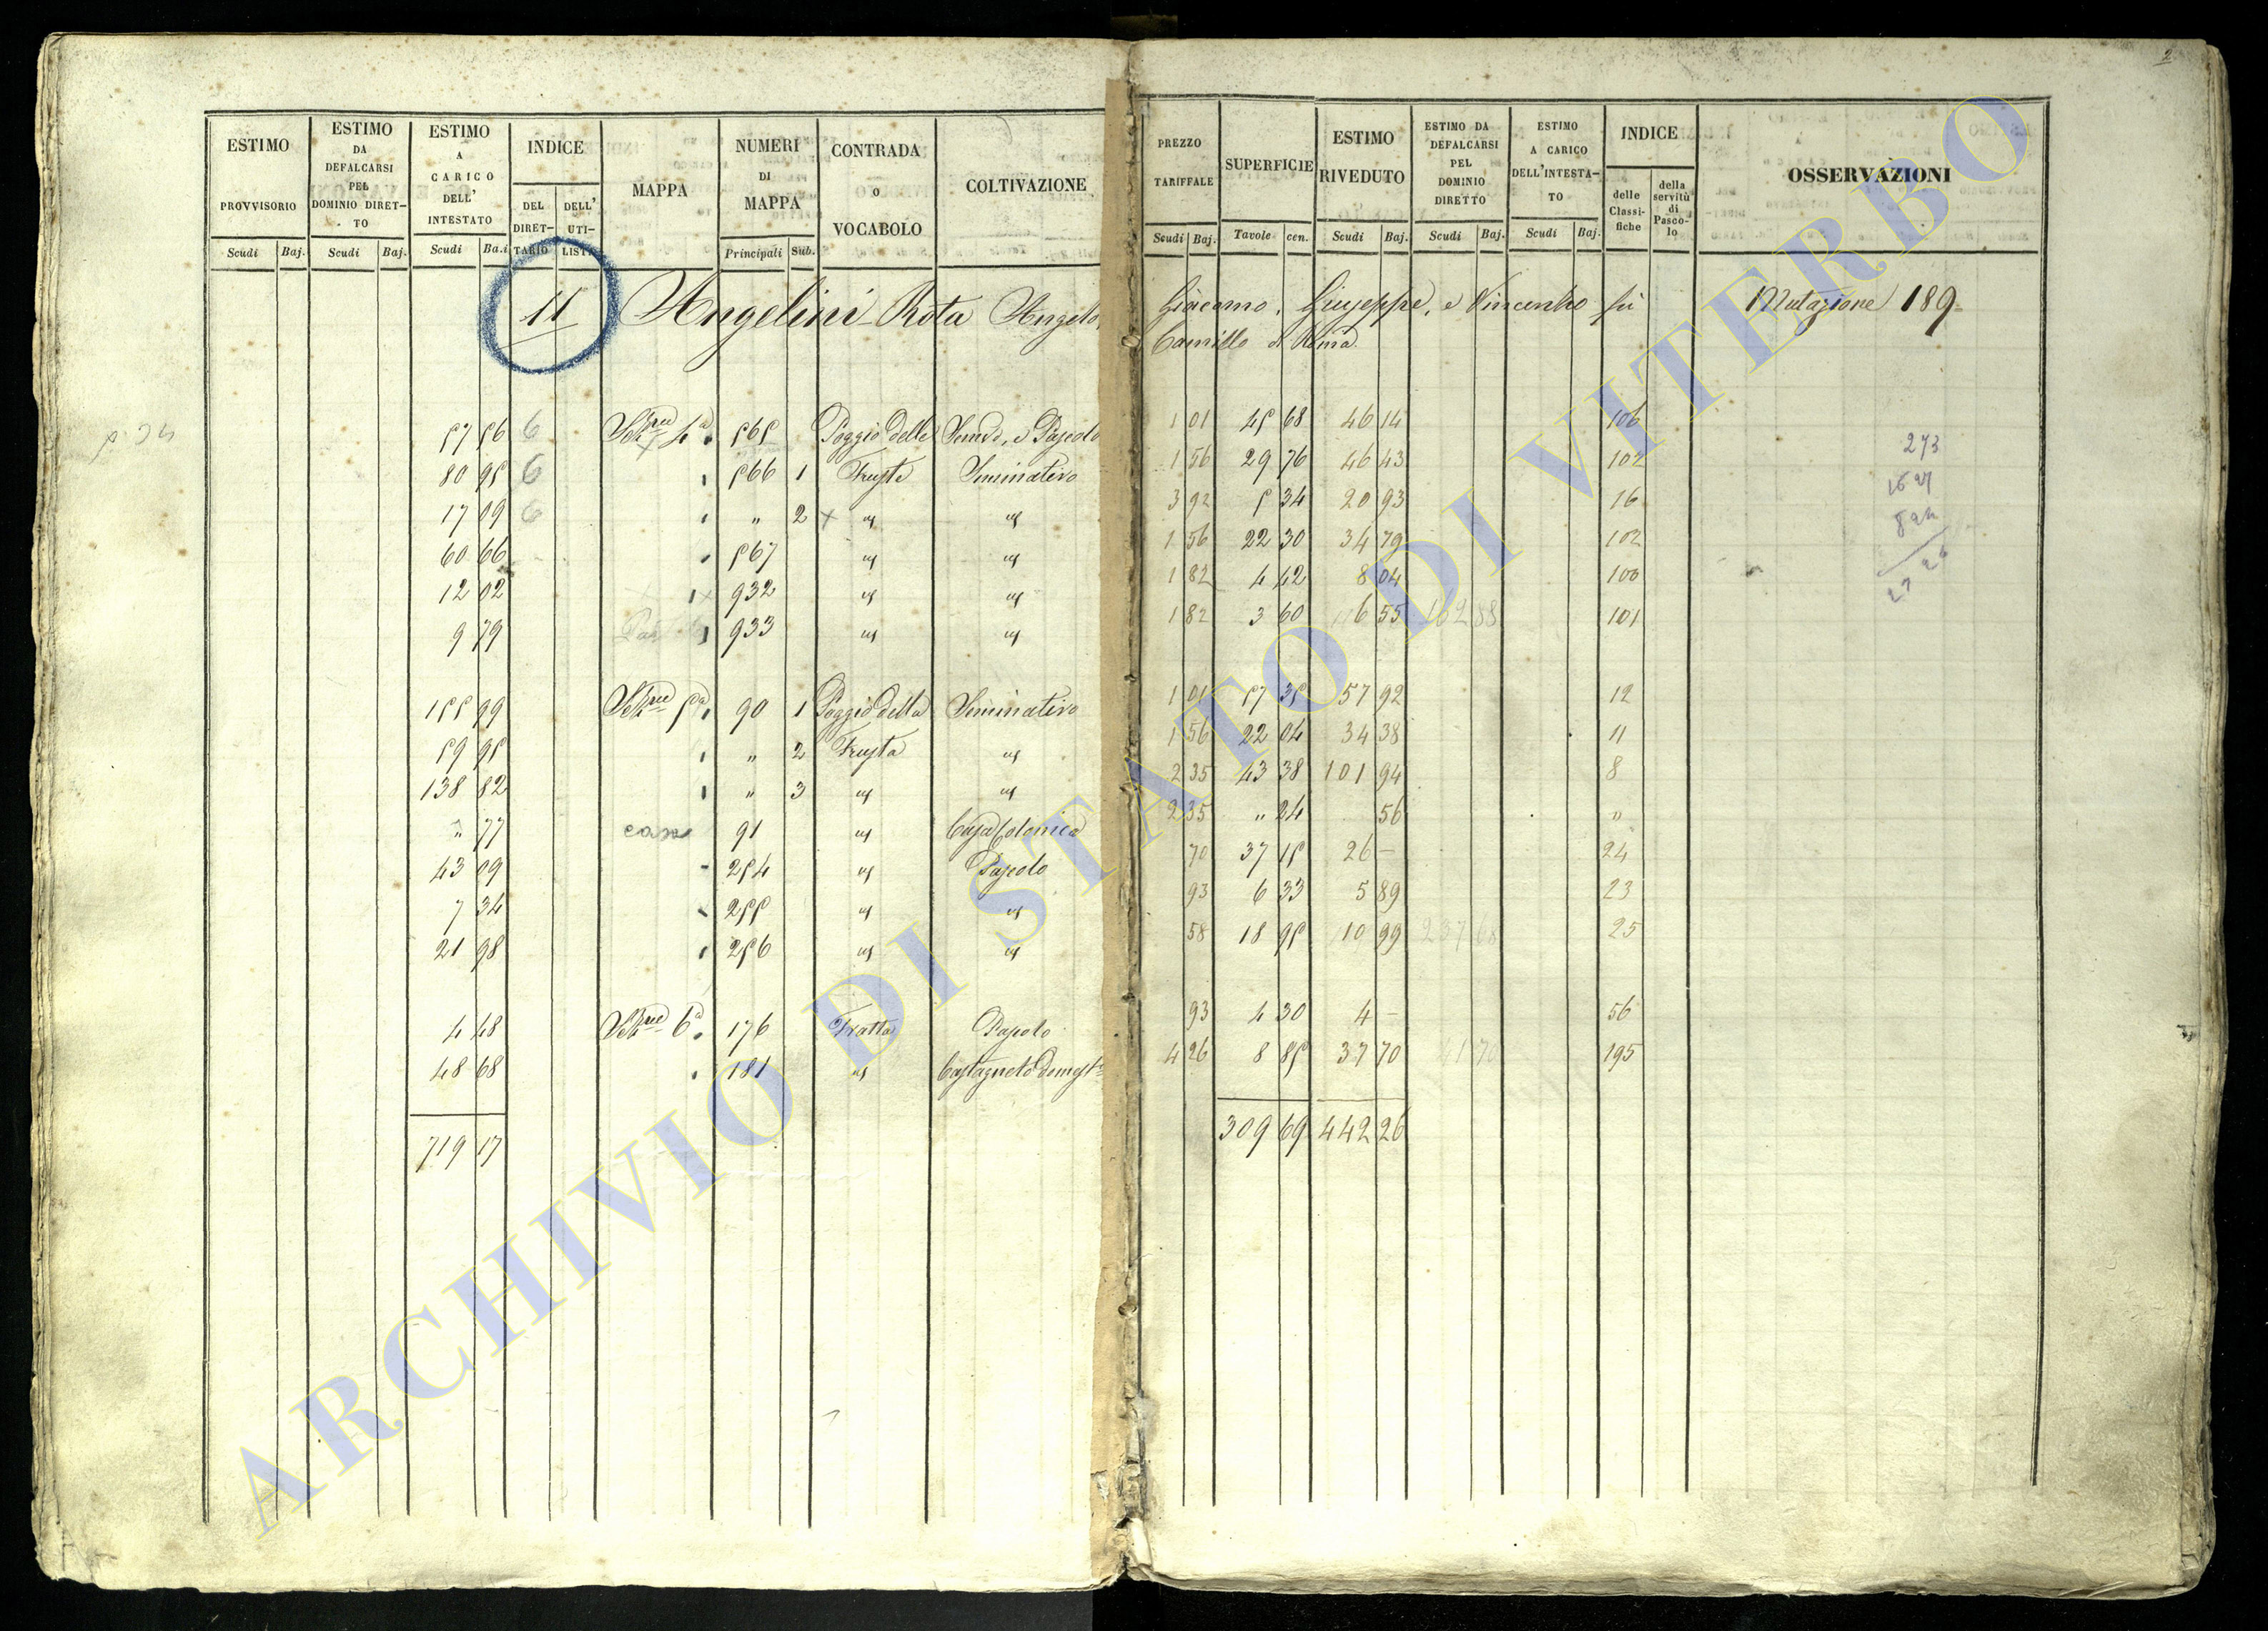 2
ESTIMO PROVVISORIO Scudi Baj.
ESTIMO DA DEFALCARSI PEL DOMINIO DIRET-TO Scudi Baj.
ESTIMO A CARICO DELL' INTESTATO Scudi Ba.i
INDICE DEL DIRET-TARIO DELL' UTI-LISTA
MAPPA
NUMERI DI MAPPA Principali Sub.
CONTRADA o VOCABOLO
COLTIVAZIONE
PREZZO TARIFFALE Scudi Baj.
SUPERFICIE Tavole cen.
ESTIMO RIVEDUTO Scudi Baj.
ESTIMO DA DEFALCARSI PEL DOMINIO DIRETTO Scudi Baj.
ESTIMO A CARICO DELL'INTESTA-TO Scudi Baj.
INDICE delle Classi-fiche della servitù di Pasco-lo
OSSERVAZIONI
11 Angelini-Rota Angelo, Giacomo, Giuseppe, e Vincenzo fu Mutazione 189
Camillo di Roma
57 56 6 Sez.ne 4a 565 Poggio della Semvo, e Pascolo 1 01 45 68 46 14 106
80 95 6 566 1 Frusta Seminativo 1 56 29 76 46 43 102 273
17 09 6 " 2 x us us 3 92 5 34 20 93 16
60 66 567 us us 1 56 22 30 34 79 102
12 02 932 us us 1 82 4 42 8 04 100
9 79 933 us us 1 82 3 60 6 55 162 88 101
155 99 Sez.ne 5a 90 1 Poggio della Seminativo 1 01 57 35 57 92 12
59 95 " 2 Frusta us 1 56 22 04 34 38 11
138 82 " 3 us us 2 35 43 38 101 94 8
" 77 casa 91 us Casa Colonica 2 35 " 24 56 "
43 09 254 us Pascolo 70 37 15 26 - 24
7 34 255 us us 93 6 33 5 89 23
21 98 256 us us 58 18 95 10 99 237 68 25
4 48 Sez.ne 6a 176 Fratta Pascolo 93 4 30 4 - 56
48 68 181 us Castagneto domest. 4 26 8 85 37 70 41 70 195
719 17 309 69 442 26
ARCHIVIO DI STATO DI VITERBO